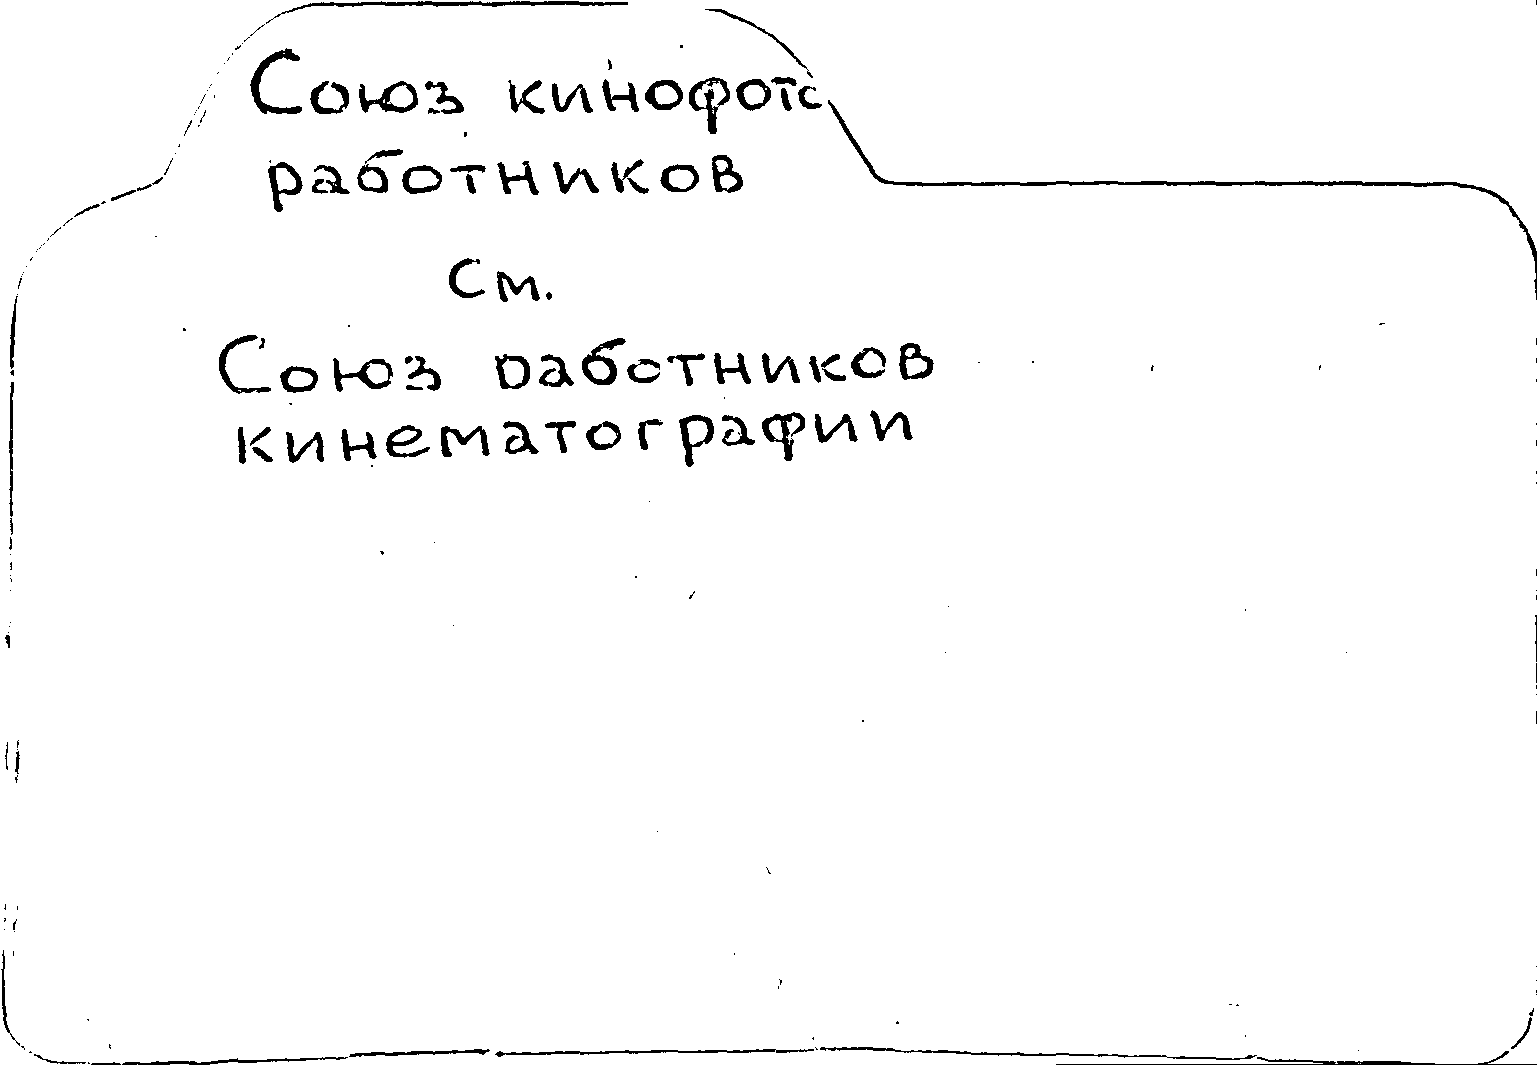 Союз кинофото
работников
См.
Союз работников
кинематографии